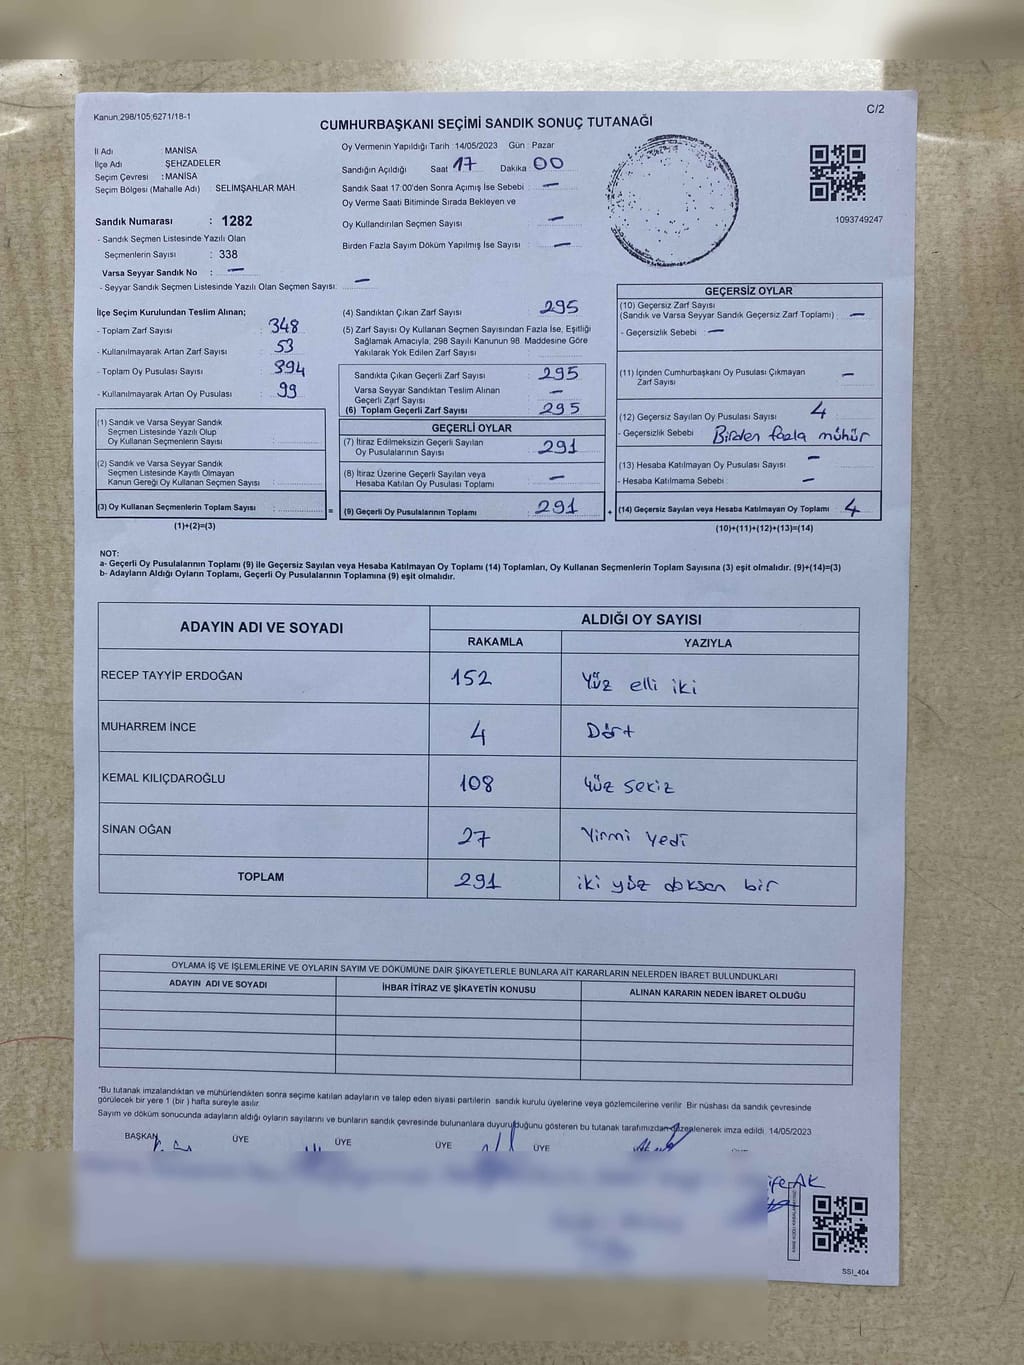 Kanun;298/105;6271/18-1
C/2
CUMHURBAŞKANI SEÇİMİ SANDIK SONUÇ TUTANAĞI
İl Adı : MANİSA
İlçe Adı : ŞEHZADELER
Seçim Çevresi : MANİSA
Seçim Bölgesi (Mahalle Adı) : SELİMŞAHLAR MAH.
Sandık Numarası : 1282
- Sandık Seçmen Listesinde Yazılı Olan
Seçmenlerin Sayısı : 338
Varsa Seyyar Sandık No : —
- Seyyar Sandık Seçmen Listesinde Yazılı Olan Seçmen Sayısı: —
Oy Vermenin Yapıldığı Tarih : 14/05/2023 Gün : Pazar
Sandığın Açıldığı Saat 17 Dakika 00
Sandık Saat 17:00'den Sonra Açımış İse Sebebi : —
Oy Verme Saati Bitiminde Sırada Bekleyen ve
Oy Kullandırılan Seçmen Sayısı : —
Birden Fazla Sayım Döküm Yapılmış İse Sayısı : —
1093749247
İlçe Seçim Kurulundan Teslim Alınan;
- Toplam Zarf Sayısı : 348
- Kullanılmayarak Artan Zarf Sayısı : 53
- Toplam Oy Pusulası Sayısı : 394
- Kullanılmayarak Artan Oy Pusulası : 99
(1) Sandık ve Varsa Seyyar Sandık
Seçmen Listesinde Yazılı Olup
Oy Kullanan Seçmenlerin Sayısı :
(2) Sandık ve Varsa Seyyar Sandık
Seçmen Listesinde Kayıtlı Olmayan
Kanun Gereği Oy Kullanan Seçmen Sayısı :
(3) Oy Kullanan Seçmenlerin Toplam Sayısı : =
(1)+(2)=(3)
(4) Sandıktan Çıkan Zarf Sayısı : 295
(5) Zarf Sayısı Oy Kullanan Seçmen Sayısından Fazla İse, Eşitliği
Sağlamak Amacıyla, 298 Sayılı Kanunun 98. Maddesine Göre
Yakılarak Yok Edilen Zarf Sayısı :
Sandıkta Çıkan Geçerli Zarf Sayısı : 295
Varsa Seyyar Sandıktan Teslim Alınan
Geçerli Zarf Sayısı : —
(6) Toplam Geçerli Zarf Sayısı : 295
GEÇERLİ OYLAR
(7) İtiraz Edilmeksizin Geçerli Sayılan
Oy Pusulalarının Sayısı : 291
(8) İtiraz Üzerine Geçerli Sayılan veya
Hesaba Katılan Oy Pusulası Toplamı : —
(9) Geçerli Oy Pusulalarının Toplamı : 291 +
GEÇERSİZ OYLAR
(10) Geçersiz Zarf Sayısı
(Sandık ve Varsa Seyyar Sandık Geçersiz Zarf Toplamı) : —
- Geçersizlik Sebebi : —
(11) İçinden Cumhurbaşkanı Oy Pusulası Çıkmayan
Zarf Sayısı : —
(12) Geçersiz Sayılan Oy Pusulası Sayısı : 4
- Geçersizlik Sebebi : Birden fazla mühür
(13) Hesaba Katılmayan Oy Pusulası Sayısı : —
- Hesaba Katılmama Sebebi : —
(14) Geçersiz Sayılan veya Hesaba Katılmayan Oy Toplamı : 4
(10)+(11)+(12)+(13)=(14)
NOT:
a- Geçerli Oy Pusulalarının Toplamı (9) ile Geçersiz Sayılan veya Hesaba Katılmayan Oy Toplamı (14) Toplamları, Oy Kullanan Seçmenlerin Toplam Sayısına (3) eşit olmalıdır. (9)+(14)=(3)
b- Adayların Aldığı Oyların Toplamı, Geçerli Oy Pusulalarının Toplamına (9) eşit olmalıdır.
ADAYIN ADI VE SOYADI
ALDIĞI OY SAYISI
RAKAMLA YAZIYLA
RECEP TAYYİP ERDOĞAN 152 Yüz elli iki
MUHARREM İNCE 4 Dört
KEMAL KILIÇDAROĞLU 108 Yüz sekiz
SİNAN OĞAN 27 Yirmi yedi
TOPLAM 291 iki yüz doksan bir
OYLAMA İŞ VE İŞLEMLERİNE VE OYLARIN SAYIM VE DÖKÜMÜNE DAİR ŞİKAYETLERLE BUNLARA AİT KARARLARIN NELERDEN İBARET BULUNDUKLARI
ADAYIN ADI VE SOYADI İHBAR İTİRAZ VE ŞİKAYETİN KONUSU ALINAN KARARIN NEDEN İBARET OLDUĞU
*Bu tutanak imzalandıktan ve mühürlendikten sonra seçime katılan adayların ve talep eden siyasi partilerin sandık kurulu üyelerine veya gözlemcilerine verilir. Bir nüshası da sandık çevresinde
görülecek bir yere 1 (bir) hafta süreyle asılır.
Sayım ve döküm sonucunda adayların aldığı oyların sayılarını ve bunların sandık çevresinde bulunanlara duyurulduğunu gösteren bu tutanak tarafımızdan düzenlenerek imza edildi. 14/05/2023
BAŞKAN ÜYE ÜYE ÜYE ÜYE
AK
SSİ_404